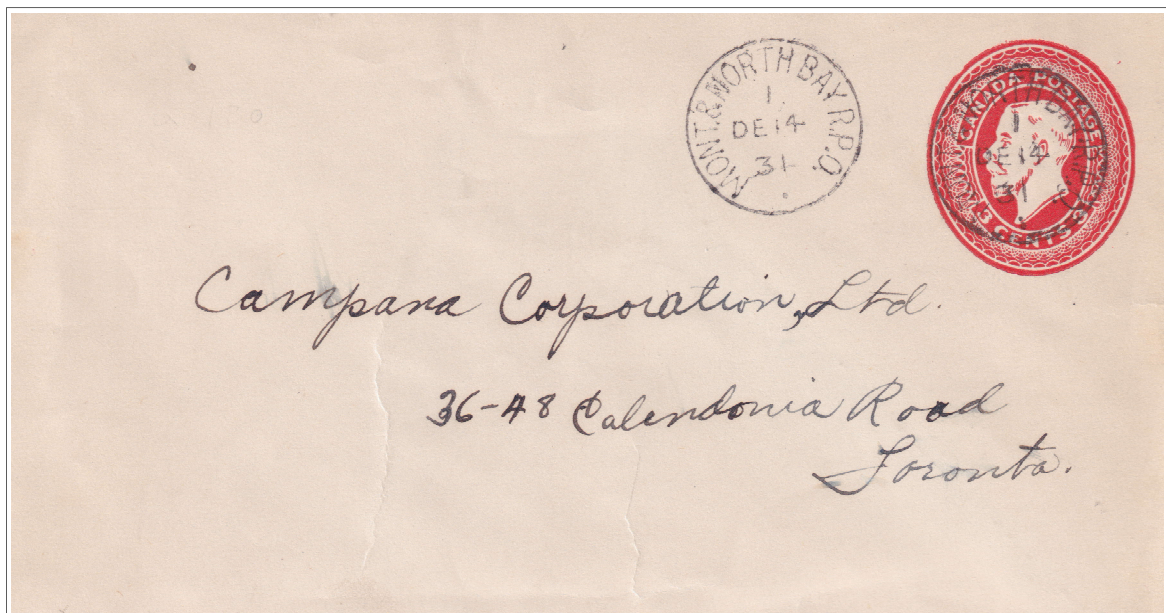 MONT. & NORTH BAY R.P.O.
1
DE 14
31
CANADA POSTAGE
3 CENTS 3
1
DE 14
31
Campana Corporation, Ltd.
36-48 Calendonia Road
Toronto.